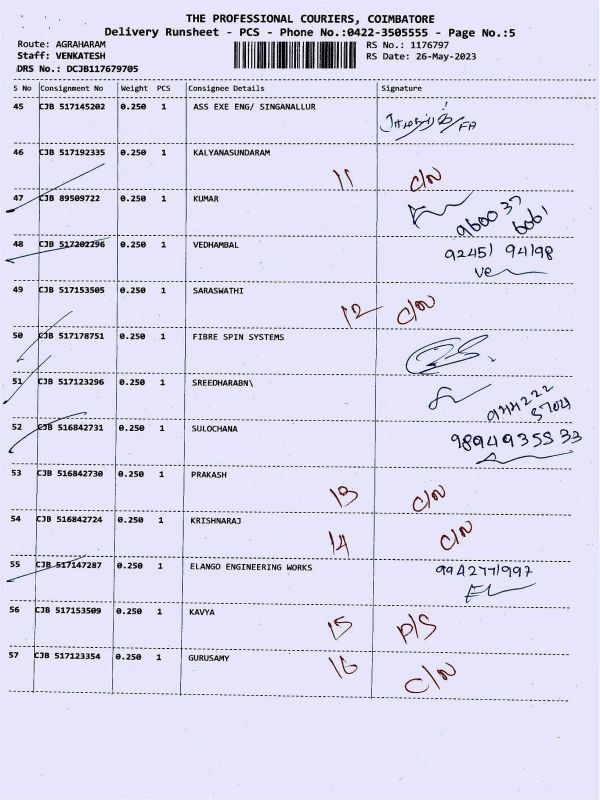 THE PROFESSIONAL COURIERS, COIMBATORE
Delivery Runsheet - PCS - Phone No.:0422-3505555 - Page No.:5
Route: AGRAHARAM RS No.: 1176797
Staff: VENKATESH RS Date: 26-May-2023
DRS No.: DCJB117679705
S No Consignment No Weight PCS Consignee Details Signature
45 CJB 517145202 0.250 1 ASS EXE ENG/ SINGANALLUR
46 CJB 517192335 0.250 1 KALYANASUNDARAM
11 C/N
47 CJB 89509722 0.250 1 KUMAR
960037
6061
48 CJB 517202296 0.250 1 VEDHAMBAL
92451 94198
ve
49 CJB 517153505 0.250 1 SARASWATHI
12 C/N
50 CJB 517178751 0.250 1 FIBRE SPIN SYSTEMS
51 CJB 517123296 0.250 1 SREEDHARABN\
944222
52 CJB 516842731 0.250 1 SULOCHANA
9894935533
53 CJB 516842730 0.250 1 PRAKASH
13 C/N
54 CJB 516842724 0.250 1 KRISHNARAJ
14 C/N
55 CJB 517147287 0.250 1 ELANGO ENGINEERING WORKS
9942771997
56 CJB 517153509 0.250 1 KAVYA
15 P/S
57 CJB 517123354 0.250 1 GURUSAMY
16 C/N